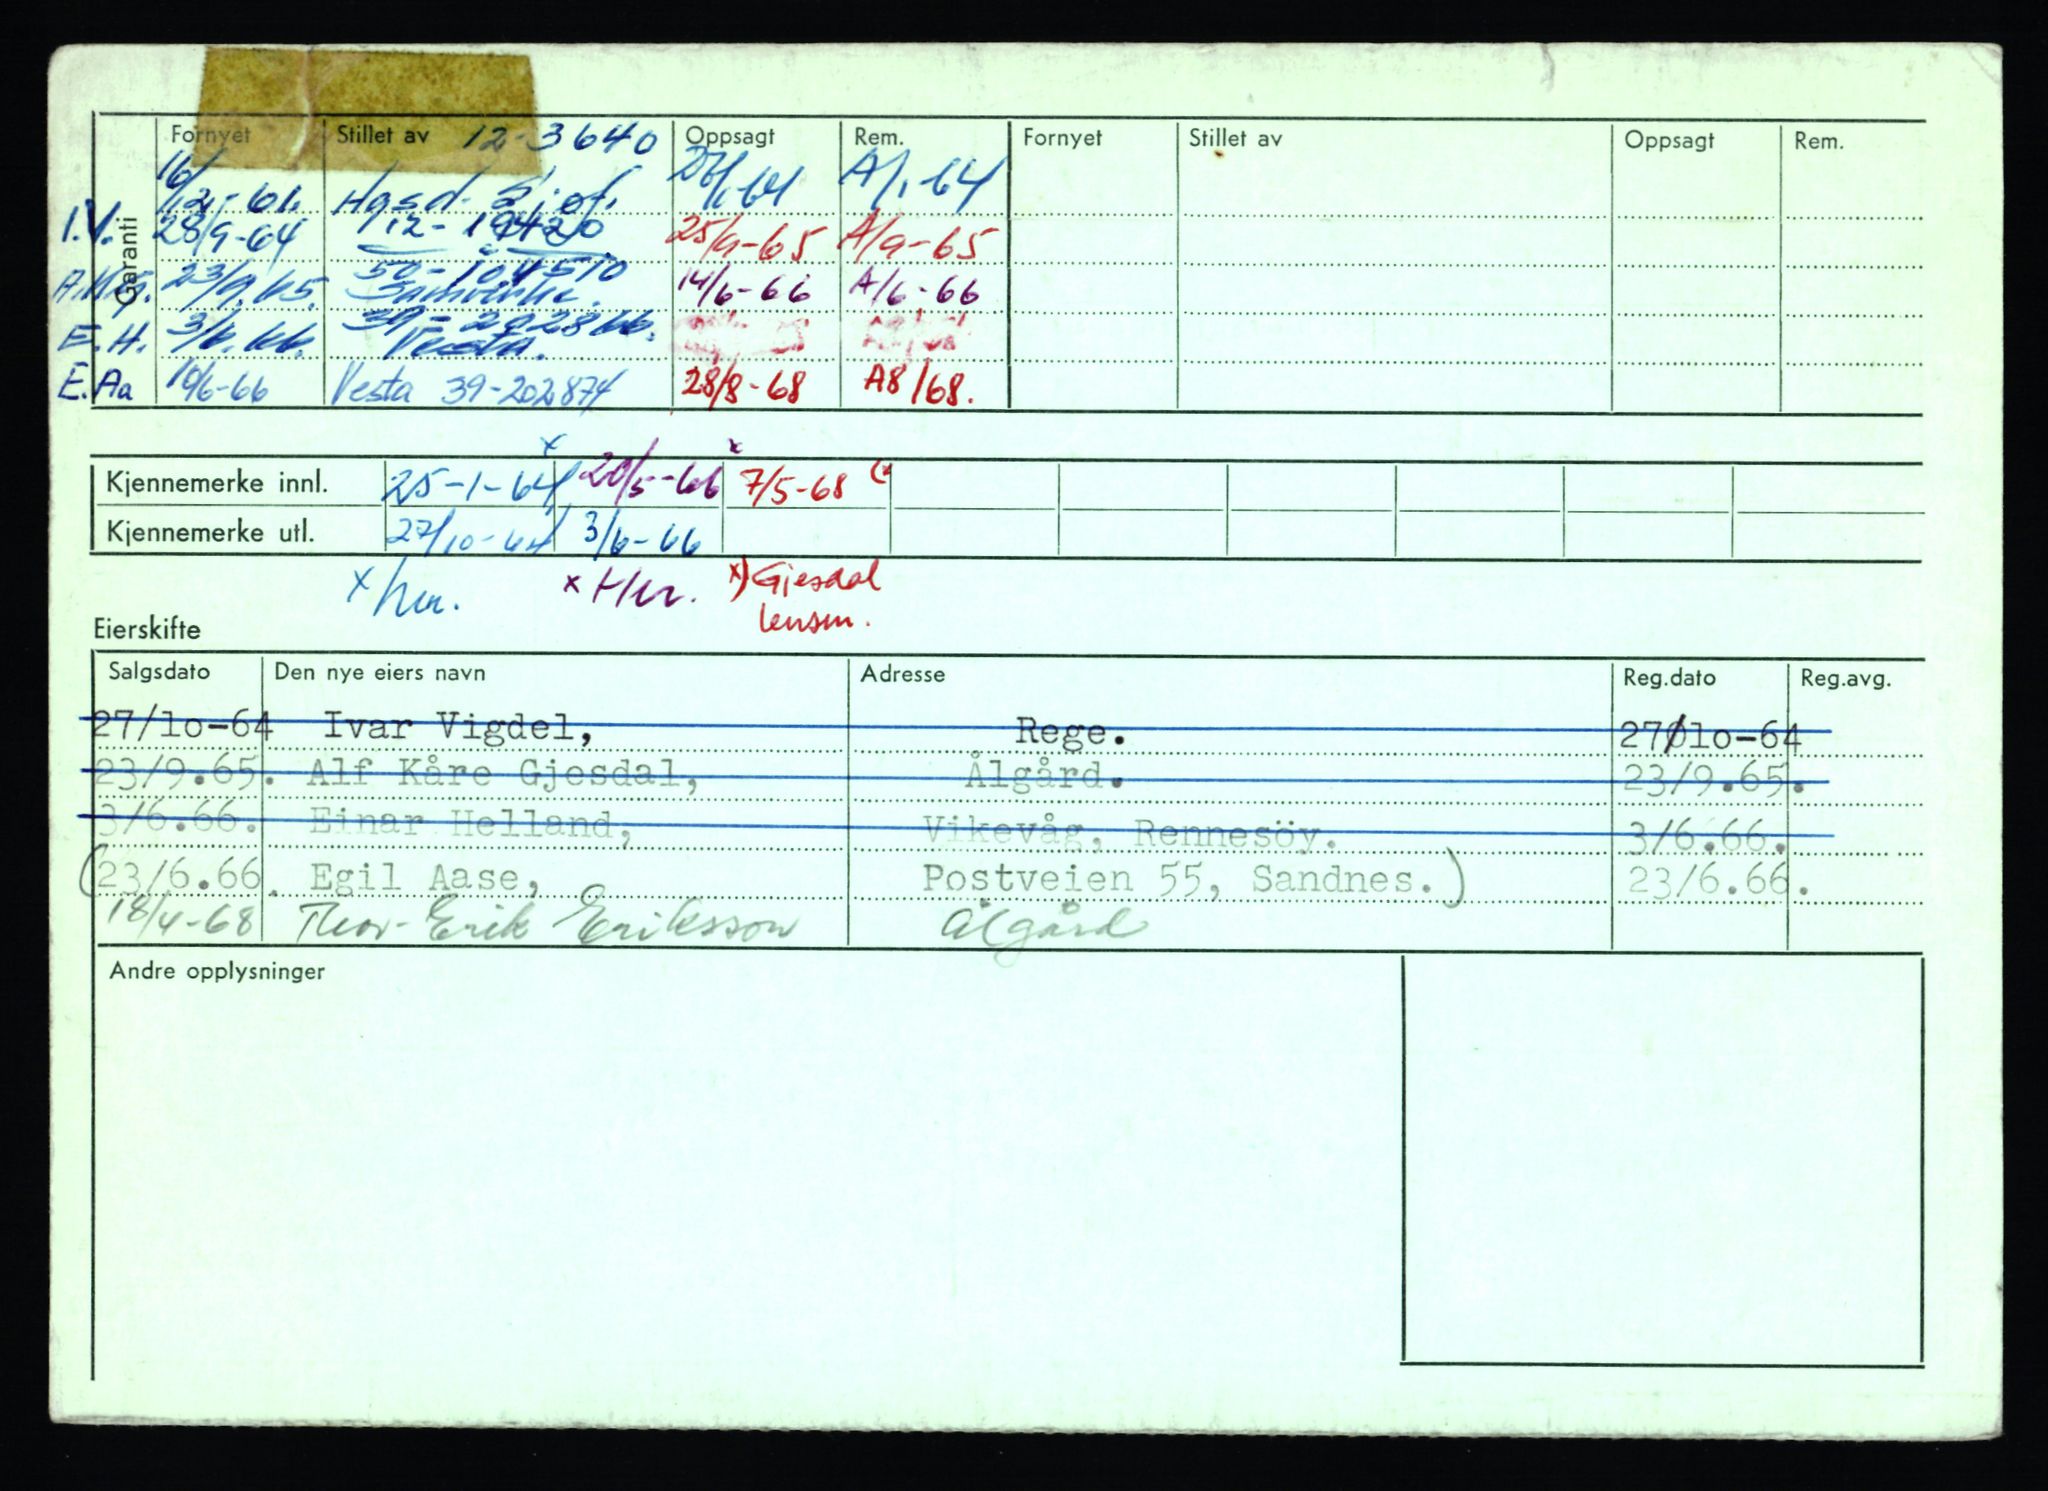 Fornyet Stillet av 12-3640 Oppsagt Rem. Fornyet Stillet av Oppsagt Rem.
Garanti
16/12-61. A/1-64
I.V. 28/9-64 12-19420 25/9-65 A/9-65
23/9.65. 50-104510 14/6-66 A/6-66
Samvirke.
E.H. 3/6.66. Vesta.
E.Aa 10/6-66 Vesta 39-202874 28/8-68 A8/68.
x x
Kjennemerke innl. 25-1-64 20/5-66 7/5-68 (x
Kjennemerke utl. 27/10-64 3/6-66
x her. x Her. x) Gjesdal
lensm.
Eierskifte
Salgsdato Den nye eiers navn Adresse Reg.dato Reg.avg.
27/lo-64 Ivar Vigdel, Rege. 27/lo-64
23/9.65. Alf Kåre Gjesdal, Ålgård. 23/9.65.
3/6.66. Einar Helland, Vikevåg, Rennesöy. 3/6.66.
(23/6.66. Egil Aase, Postveien 55, Sandnes.) 23/6.66.
18/4-68 Thor-Erik Eriksson Ålgård
Andre opplysninger